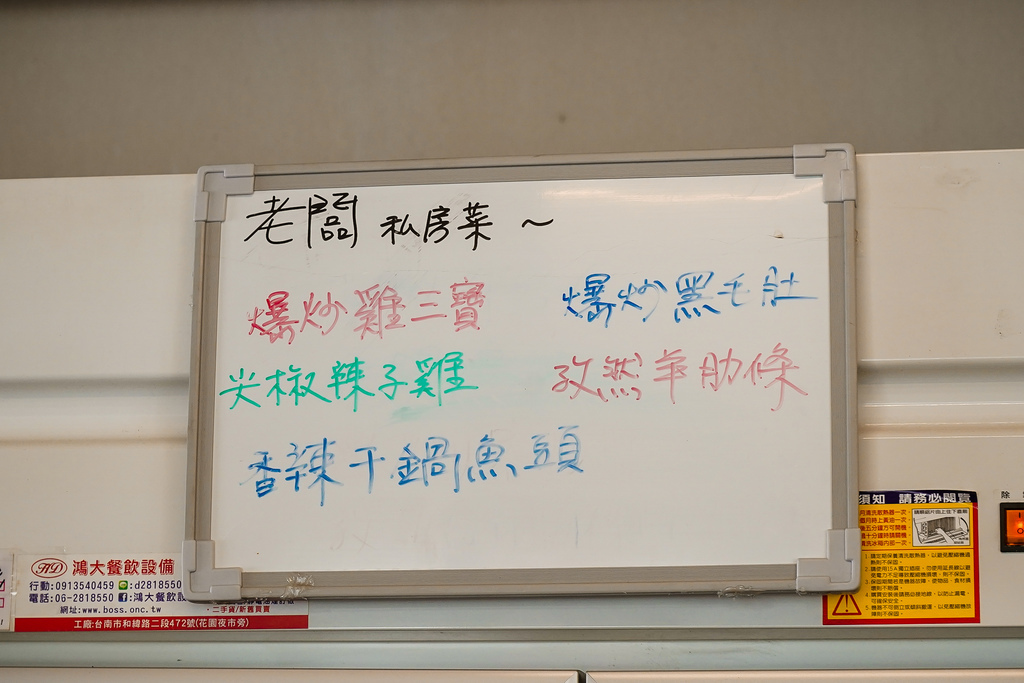 老闆 私房菜 ~
爆炒雞三寶
爆炒黑毛肚
尖椒辣子雞
孜然羊肋條
香辣干鍋魚頭
HD 鴻大餐飲設備
行動:0913540459 d2818550
電話:06-2818550 鴻大餐飲設
網址:www.boss.onc.tw
二手貨/新舊買賣
工廠:台南市和緯路二段472號(花園夜市旁)
須知 請務必閱覽
除